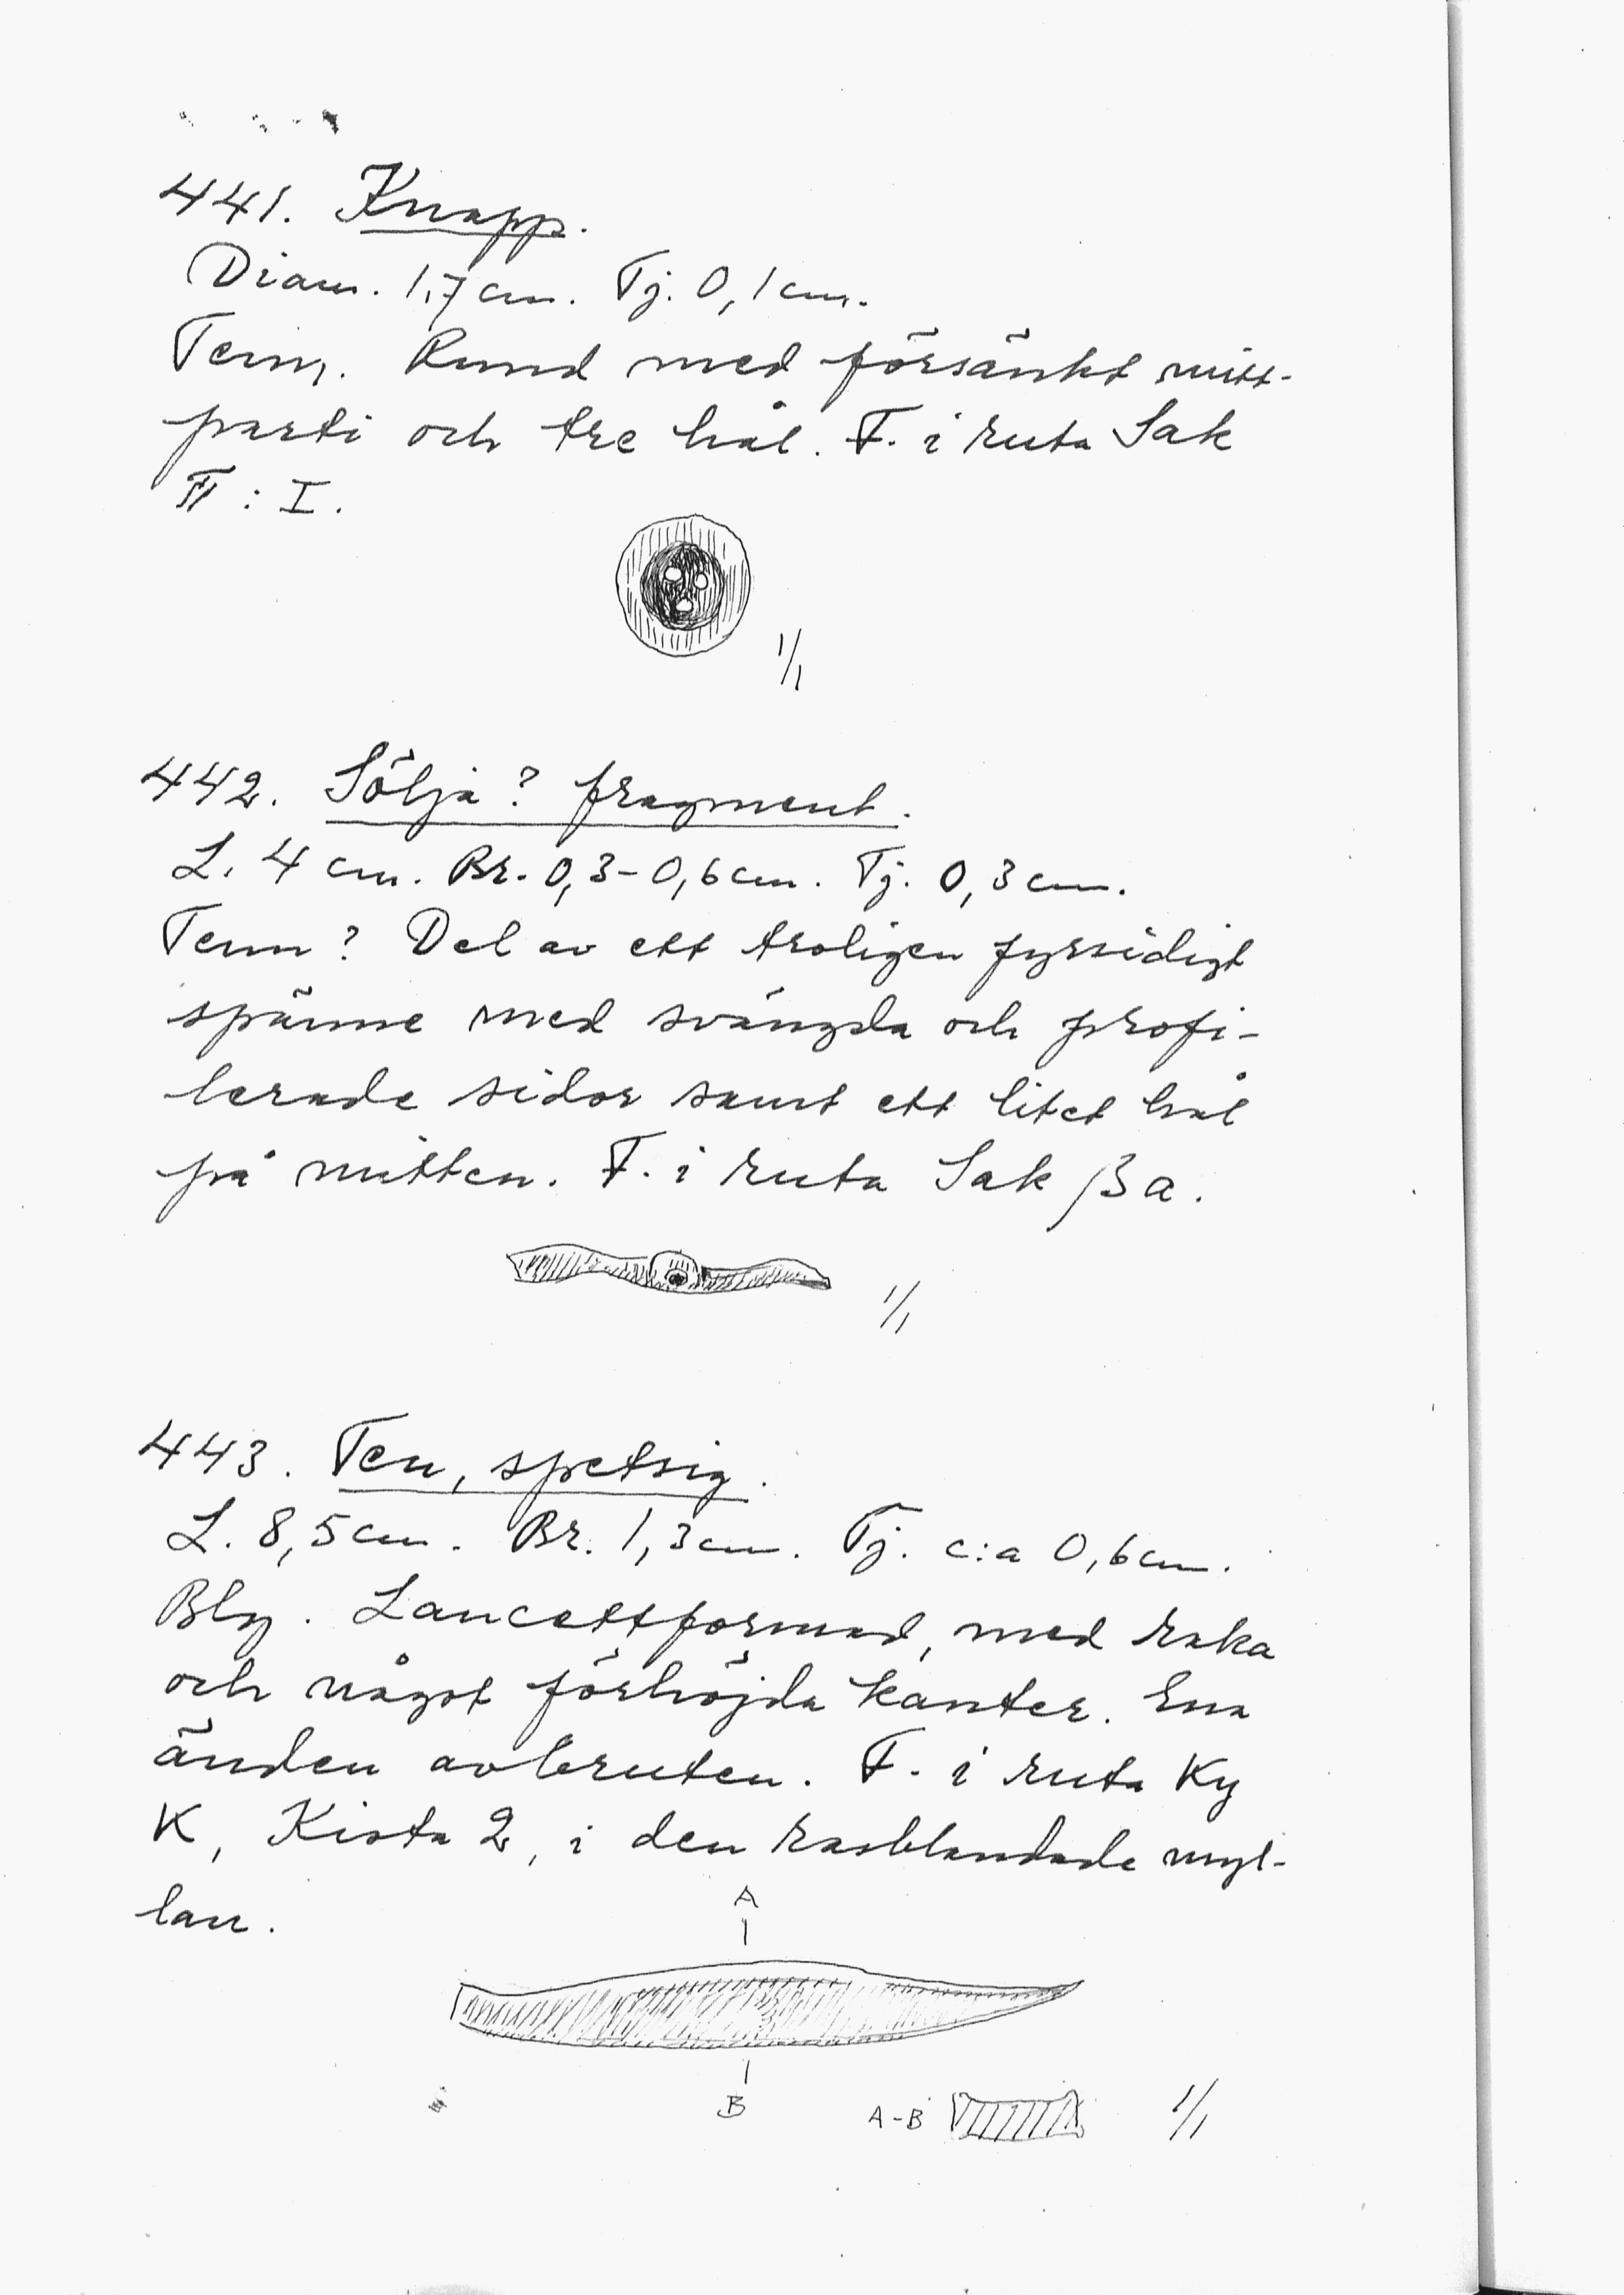 441. Knapp.
Diam. 1,7 cm. Tj. 0,1 cm.
Tenn. Rund med försänkt mitt-
parti och tre hål. F. i ruta Sak
: I.
1/1
442. Sölja? fragment.
L. 4 cm. Br. 0,3-0,6 cm. Tj. 0,3 cm.
Tenn? Del av ett troligen fyrsidigt
spänne med svängda och profi-
lerade sidor samt ett litet hål
på mitten. F. i ruta Sak βa.
1/1
443. Ten, spetsig.
L. 8,5 cm. Br. 1,3 cm. Tj. c:a 0,6 cm.
Bly. Lancettformad, med raka
och något förhöjda kanter. Ena
änden avbruten. F. i ruta Ky
K, Kista 2, i den rasblandade myl-
lan.
A
B
A-B
1/1